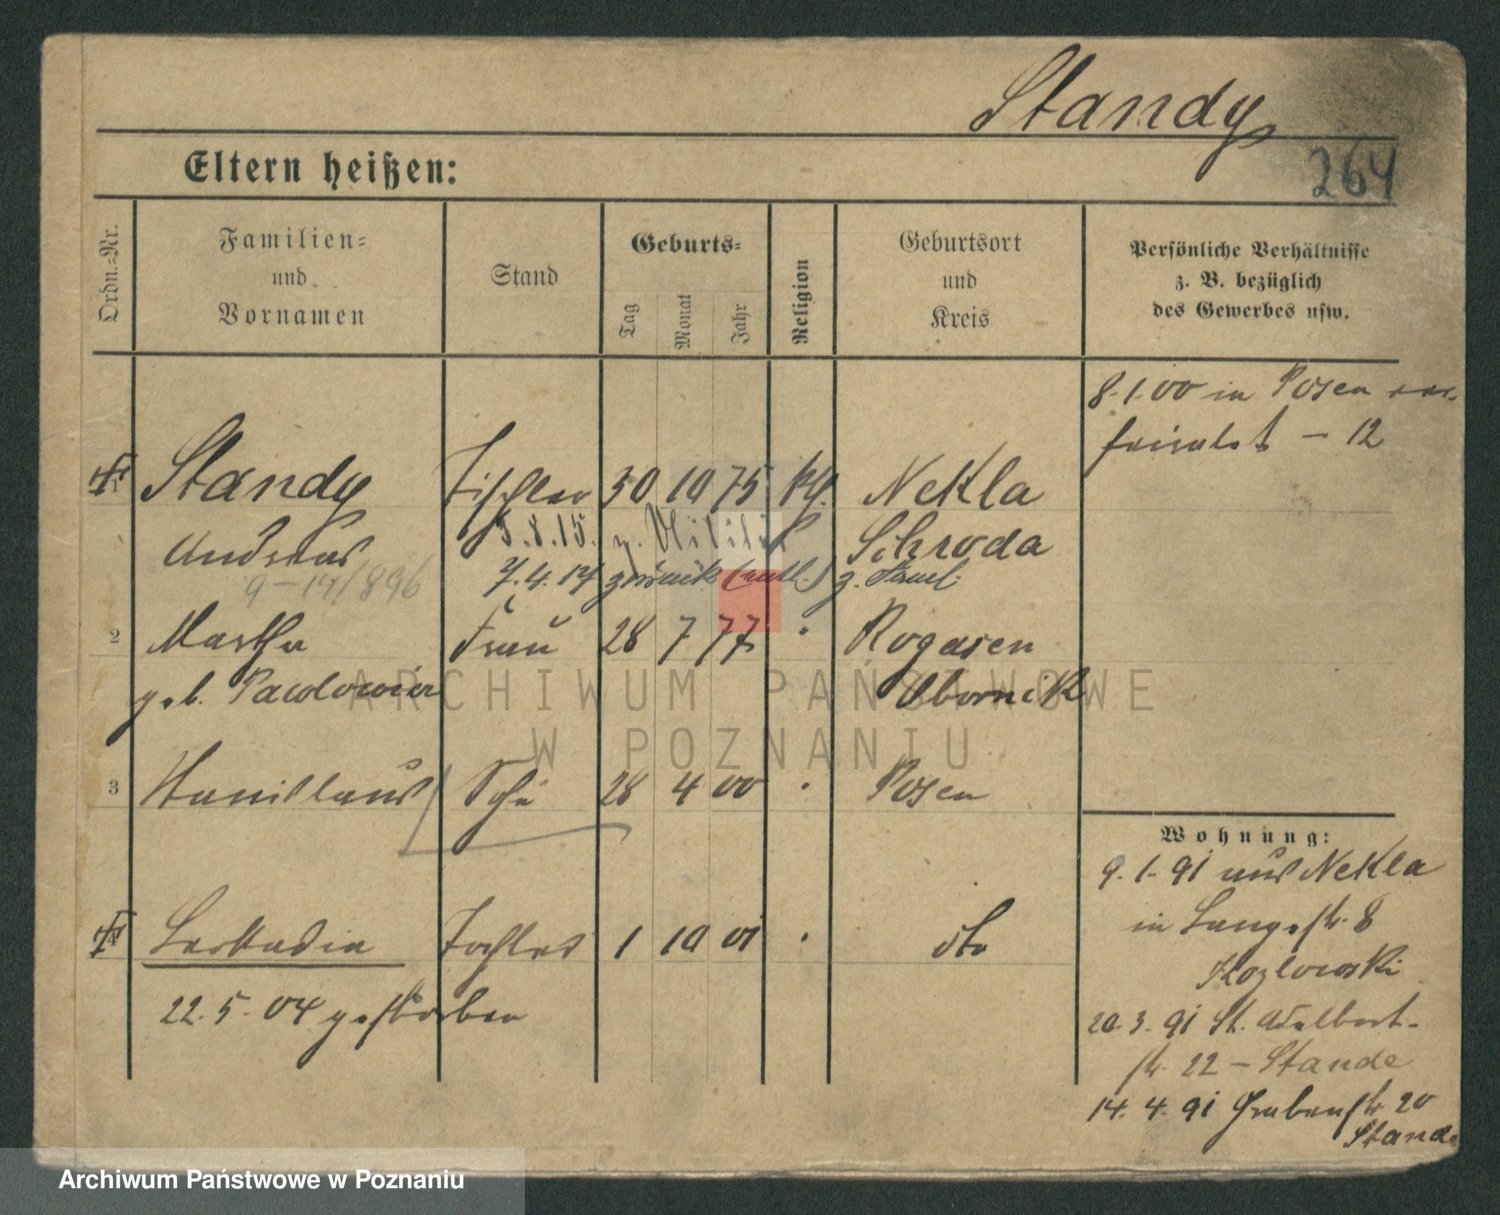 Standy
264
Eltern heißen:
Ordn.-Nr.
Familien-
und
Vornamen
Stand
Geburts-
Tag
Monat
Jahr
Religion
Geburtsort
und
Kreis
Persönliche Verhältnisse
z. B. bezüglich
des Gewerbes usw.
8.1.00 in Posen ver-
heiratet – 12
1 Standy Tischler 30 10 75 kth. Nekla
Andreas 5.8.15. z. Militär Schroda
9–14/896 7.4.17 zurück (entl.) z. Fam.
2 Martha Frau 28 7 77 " Rogasen
geb. Pawlowicz Obornik
3 Stanislaus Sohn 28 4 00 " Posen
4 Leokadia Tochter 1 10 01 " dto
22.5.04 gestorben
Wohnung:
9.1.91 aus Nekla
in Langestr. 8
Kozlowski
20.3.91 St. Adalbert-
str. 22 – Stande
14.4.91 Grabenstr. 20
Stande
ARCHIWUM PAŃSTWOWE
W POZNANIU
Archiwum Państwowe w Poznaniu